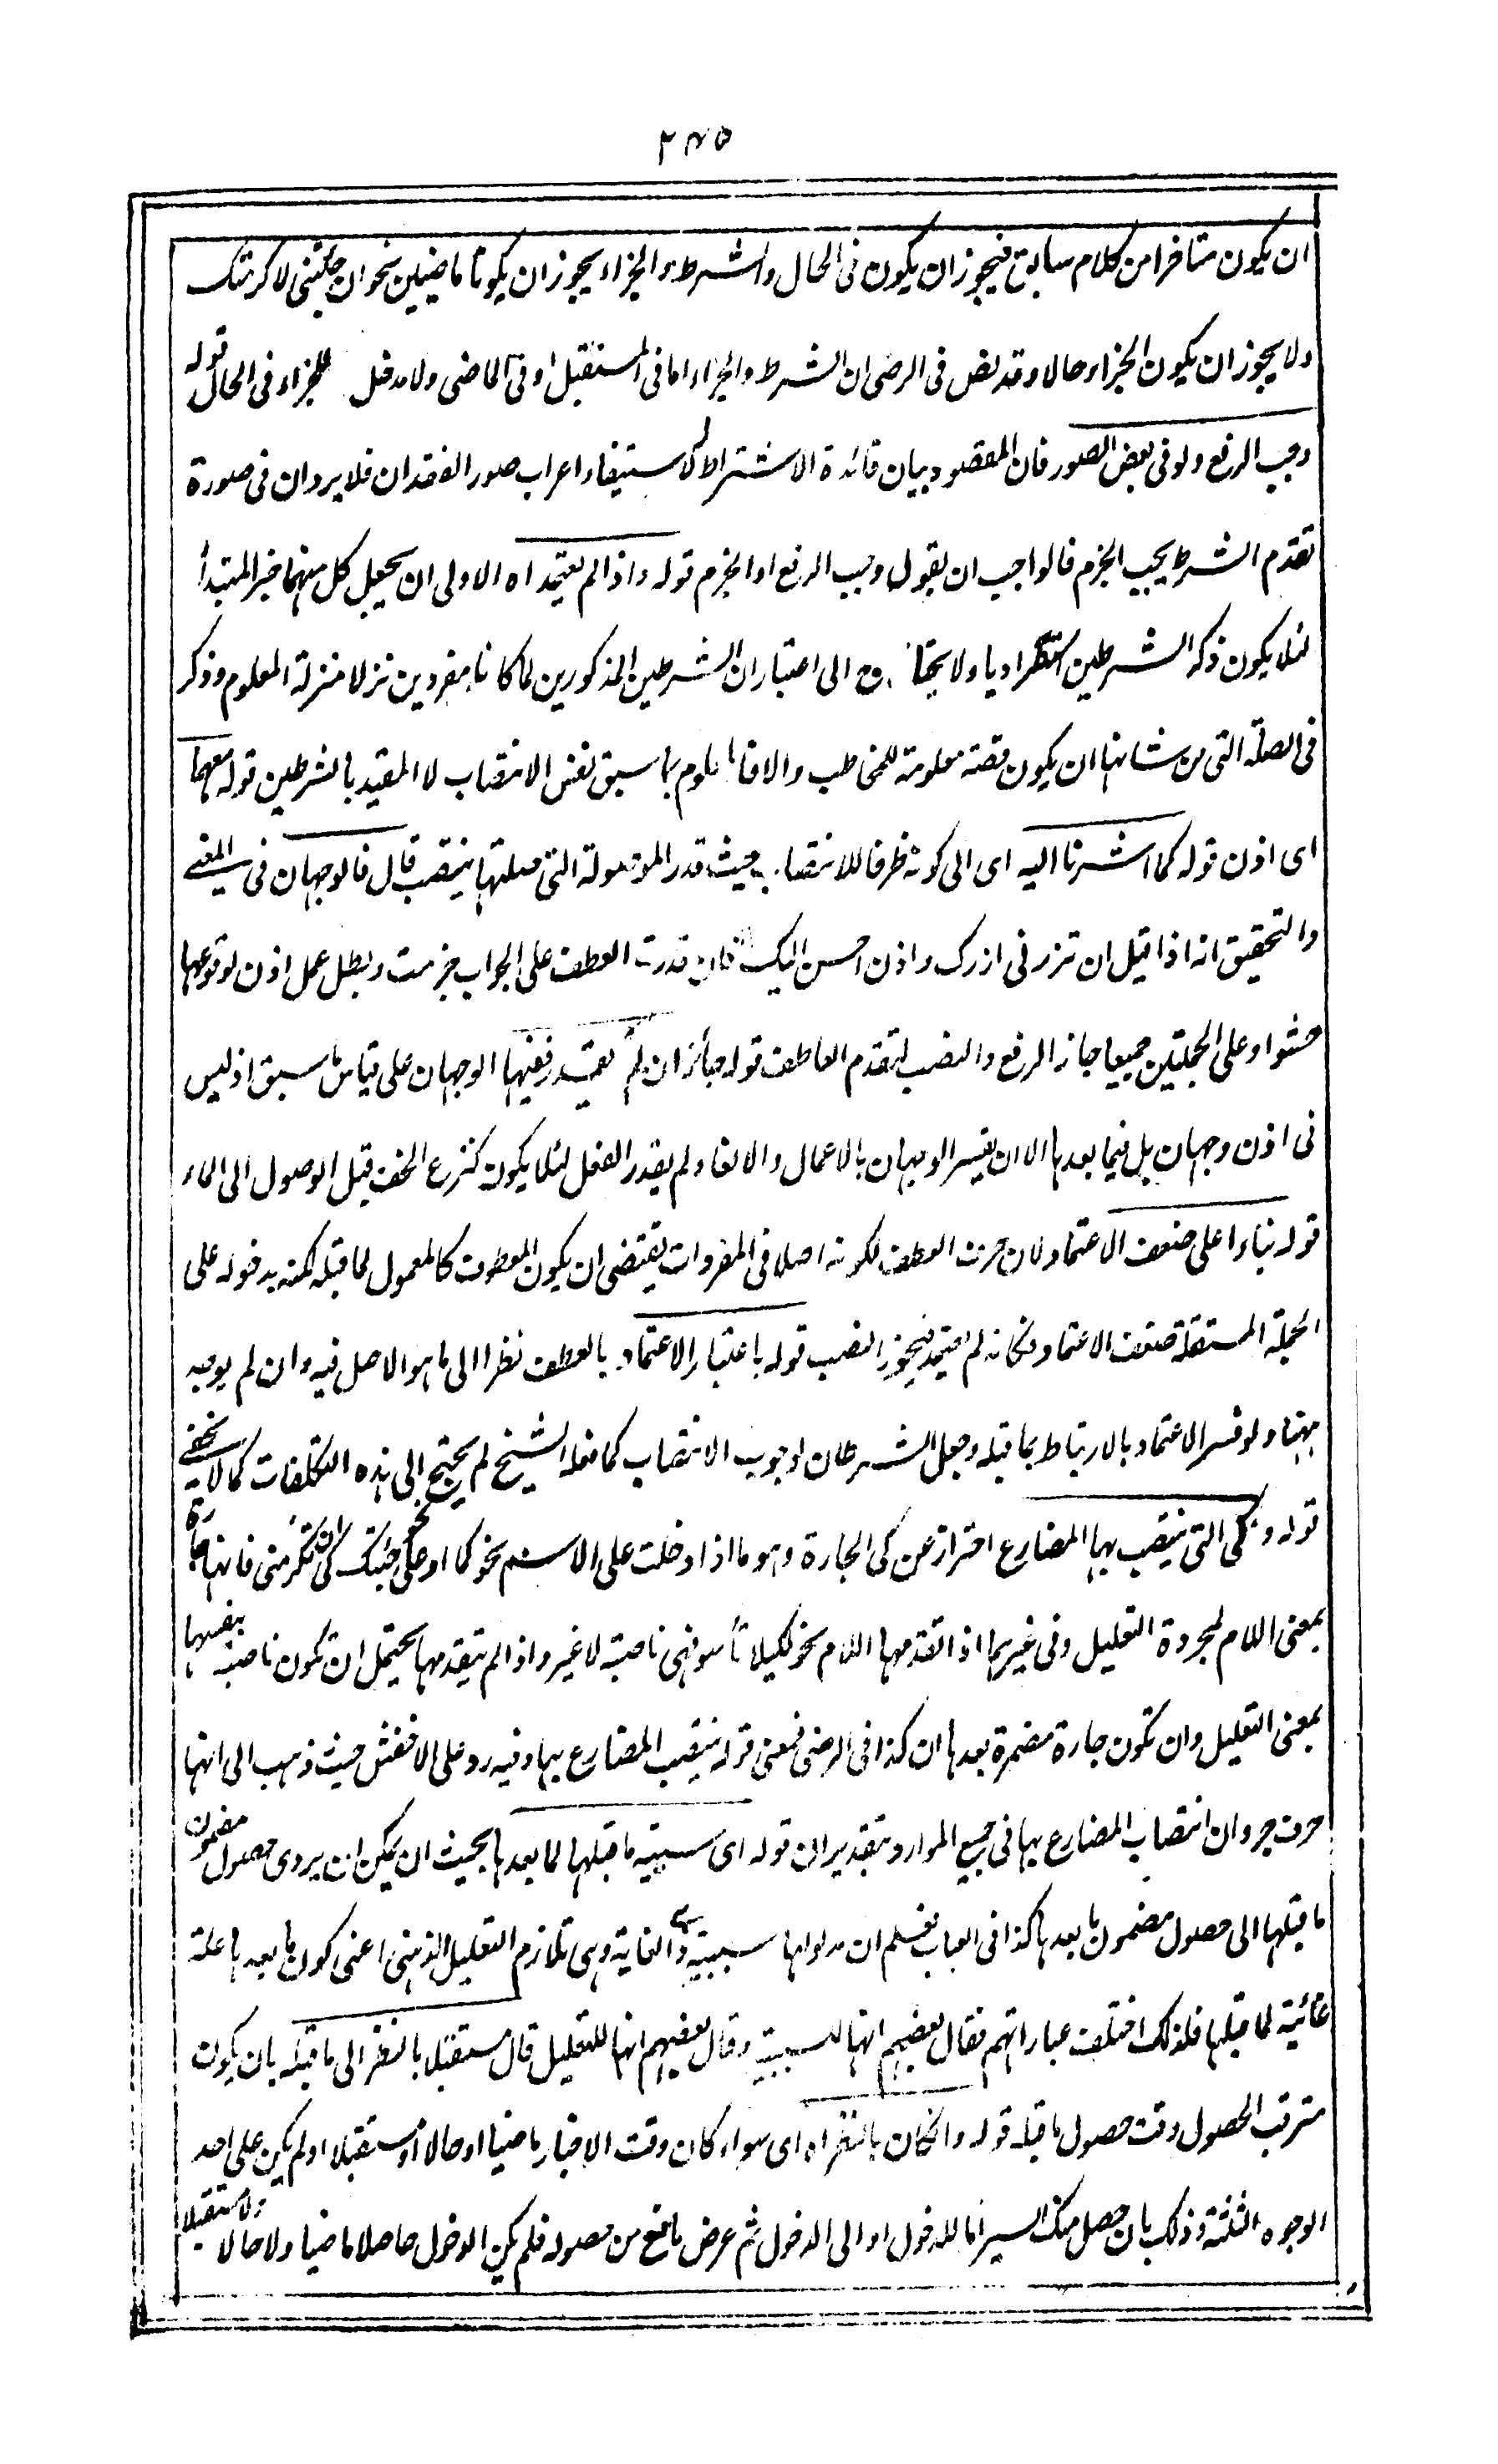 ٢٤٥
ان يكون متأخرا من كلام سابق فيجوز ان يكون فى الحال والشرط والجزاء يجوز ان يكونا ماضيين نحو ان جئتنى لاكرمتك
ولا يجوز ان يكون الجزاء حالا وقد نص فى الرضى ان الشرط والجزاء اما فى المستقبل او فى الماضى ولا مدخل للجزاء فى الحال قوله
وجب الرفع ولو فى بعض الصور فان المقصود بيان فائدة الاشتراط لا استيفاء اعراب صور الفقدان فلا يرد ان فى صورة
تقدم الشرط يجب الجزم فالواجب ان يقول وجب الرفع او الجزم قوله واذا لم يعتمد اه الاولى ان يجعل كل منهما خبر المبتدأ
لئلا يكون ذكر الشرطين استطراديا ولا يحتاج الى اعتبار ان الشرطين المذكورين لما كانا مفردين نزلا منزلة المعلوم وذكر
فى الصلة التى من شانها ان يكون قصة معلومة للمخاطب والا فالمعلوم بما سبق نفس الانتصاب لا المقيد بالشرطين قوله معهما
اى اذن قوله كما اشرنا اليه اى الى كونه ظرفا للانتصاب حيث قدر الموصولة التى صلتها ينتصب قال فالوجهان فى المغنى
والتحقيق انه اذا قيل ان تزرنى ازرك واذن احسن اليك فان قدرت العطف على الجواب جزمت وبطل عمل اذن لوقوعها
حشوا وعلى الجملتين جميعا جاز الرفع والنصب لتقدم العاطف قوله جائزان لم يقدر ففيها الوجهان على قياس ما سبق اذ ليس
فى اذن وجهان بل فيما بعدها الا ان يفسر الوجهان بالاعمال والالغاء ولم يقدر الفعل لئلا يكون كنزع الخف قبل الوصول الى الماء
قوله بناء على ضعف الاعتماد لان حرف العطف لكونه اصلا فى المفردات يقتضى ان يكون المعطوف كالمعمول لما قبله لكنه بدخوله على
الجملة المستقلة ضعف الاعتماد فكانه لم يعتمد فيجوز النصب قوله باعتبار الاعتماد بالعطف نظرا الى ما هو الاصل فيه وان لم يوجد
ههنا ولو فسر الاعتماد بالارتباط بما قبله وجعل الشرطان لوجوب الانتصاب كما فعله الشيخ لم يحتج الى هذه التكلفات كما لا يخفى
قوله وكى التى ينتصب بها المضارع احتراز عن كى الجارة وهو ما اذا دخلت على الاسم نحو كما او على ان نحو جئتك كى ان تكرمنى فانها جارة
بمعنى اللام لمجردة التعليل وفى غيرهما اذا تقدمها اللام نحو لكيلا تأسو فهى ناصبة لا غير واذا لم يتقدمها يحتمل ان تكون ناصبة بنفسها
بمعنى التعليل وان تكون جارة مضمرة بعدها ان كذا فى الرضى فمعنى قوله ينتصب المضارع بها وفيه رد على الاخفش حيث ذهب الى انها
حرف جر وان انتصاب المضارع بها فى جميع الموارد بتقدير ان قوله اى سببية ما قبلها لما بعدها بحيث ان يمكن ان يردى حصول مضمون
ما قبلها الى حصول مضمون ما بعدها كذا فى العباب فعلم ان مدلولها سببية والغاية وهى تلازم التعليل الذهنى اعنى كون ما بعدها علة
غائية لما قبلها فلذلك اختلفت عباراتهم فقال بعضهم انها للسببية وقال بعضهم انها للتعليل قال مستقبلا بالنظر الى ما قبله بان يكون
مترقب الحصول وقت حصول ما قبله قوله وان كان بالنظر اه اى سواء كان وقت الاخبار ماضيا او حالا او مستقبلا او لم يكن على احد
الوجوه الثلثة وذلك بان حصل منك السير اما للدخول او الى الدخول ثم عرض مانع من حصوله فلم يكن الدخول حاصلا ماضيا ولا حالا ولا مستقبلا